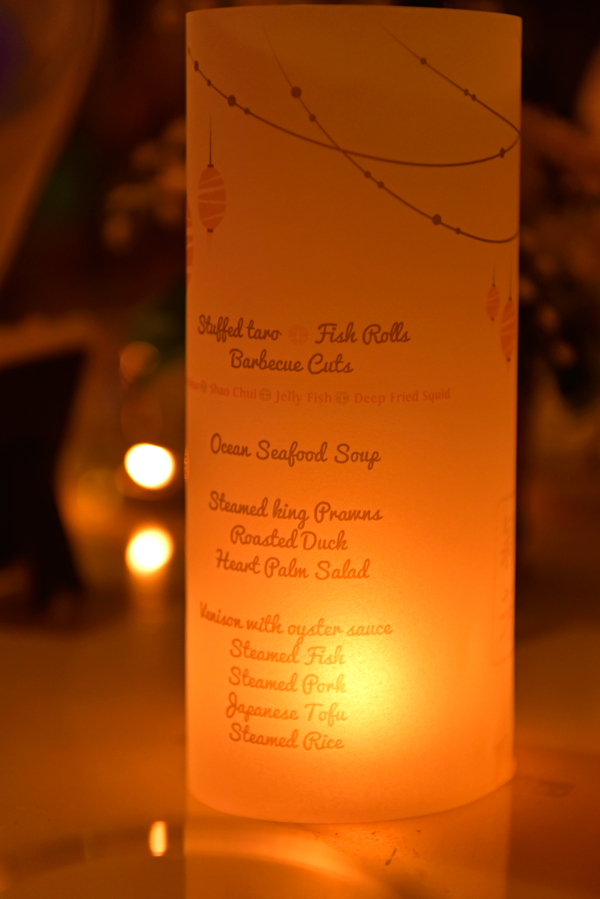 Stuffed taro Fish Rolls
Barbecue Cuts
Shao Chui Jelly Fish Deep Fried Squid
Ocean Seafood Soup
Steamed king Prawns
Roasted Duck
Heart Palm Salad
Venison with oyster sauce
Steamed Fish
Steamed Pork
Japanese Tofu
Steamed Rice